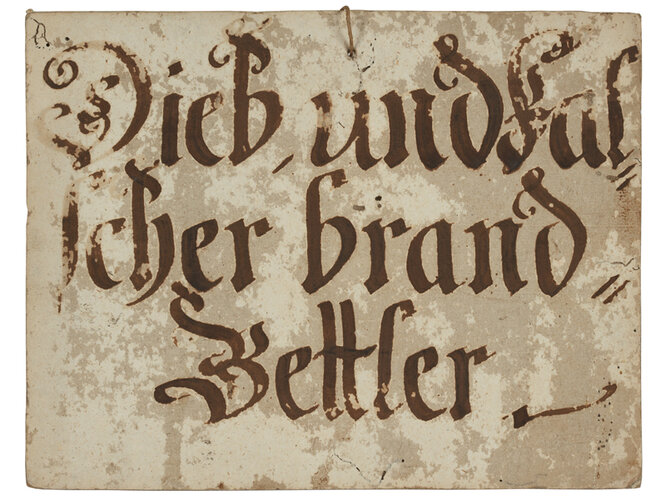 Dieb, und Fal⸗
ſcher brand⸗
Bettler